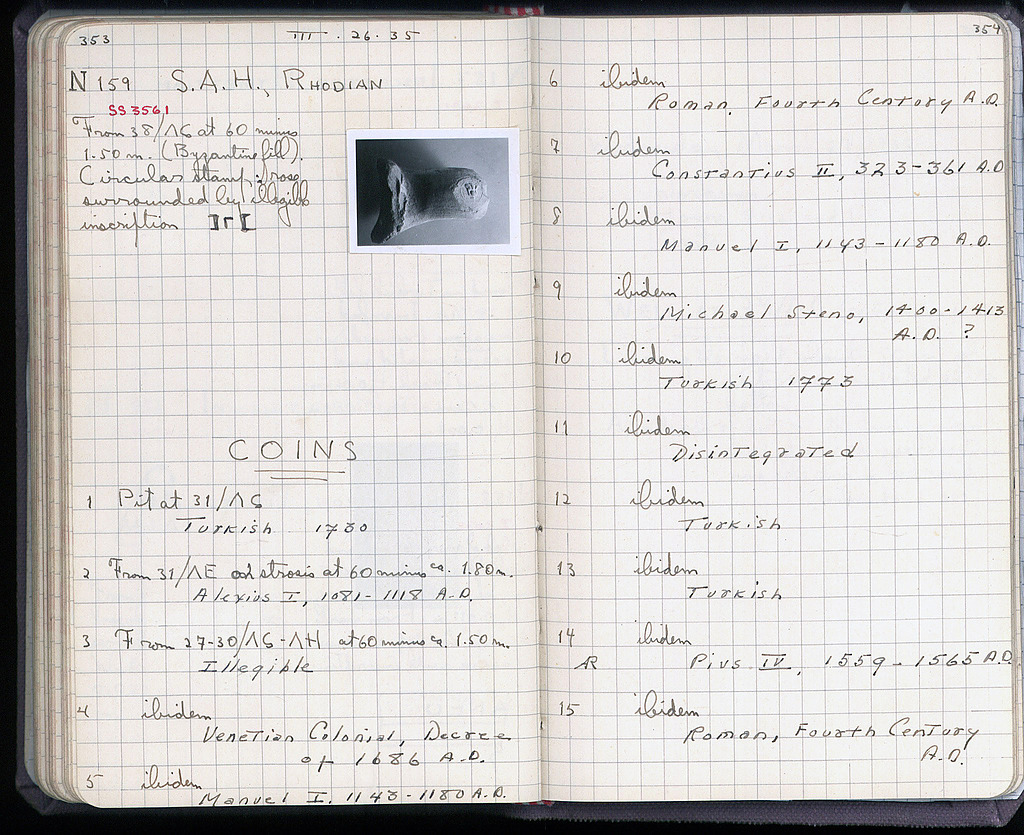 353
III . 26 . 35
N 159 S.A.H., RHODIAN
SS 3561
From 38/ΛϚ at 60 minus
1.50 m. (Byzantine fill).
Circular stamp: rose
surrounded by illegible
inscription ][
COINS
1 Pit at 31/ΛϚ
Turkish 1730
2 From 31/ΛΕ 2nd strosis at 60 minus ca. 1.80 m.
Alexius I, 1081-1118 A.D.
3 From 27-30/ΛϚ-ΛΗ at 60 minus ca. 1.50 m.
Illegible
4 ibidem
Venetian Colonial, Decree
of 1686 A.D.
5 ibidem
Manuel I, 1143-1180 A.D.
354
6 ibidem
Roman, Fourth Century A.D.
7 ibidem
Constantius II, 323-361 A.D
8 ibidem
Manuel I, 1143-1180 A.D.
9 ibidem
Michael Steno, 1400-1413
A.D. ?
10 ibidem
Turkish 1773
11 ibidem
Disintegrated
12 ibidem
Turkish
13 ibidem
Turkish
14 ibidem
AR Pius IV, 1559-1565 A.D.
15 ibidem
Roman, Fourth Century
A.D.